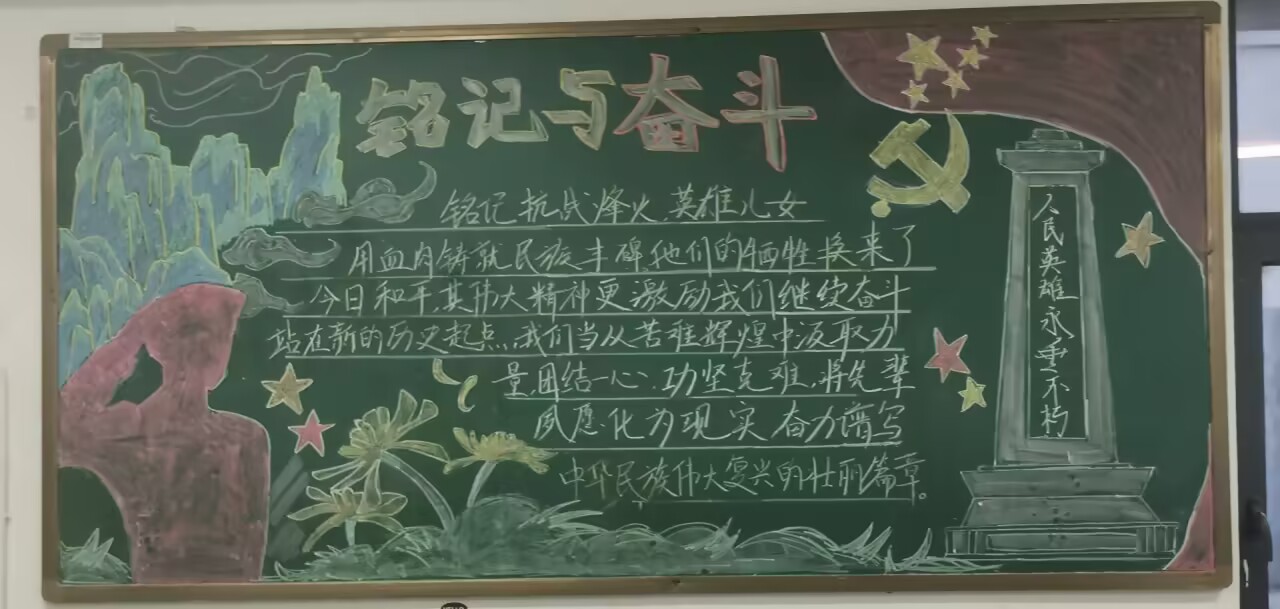 铭记与奋斗
铭记抗战烽火,英雄儿女
用血肉铸就民族丰碑,他们的牺牲换来了
今日和平,其伟大精神更激励我们继续奋斗
站在新的历史起点,我们当从苦难辉煌中汲取力
量,团结一心,功坚克难,将先辈
夙愿化为现实奋力谱写
中华民族伟大复兴的壮丽篇章。
人民英雄永垂不朽